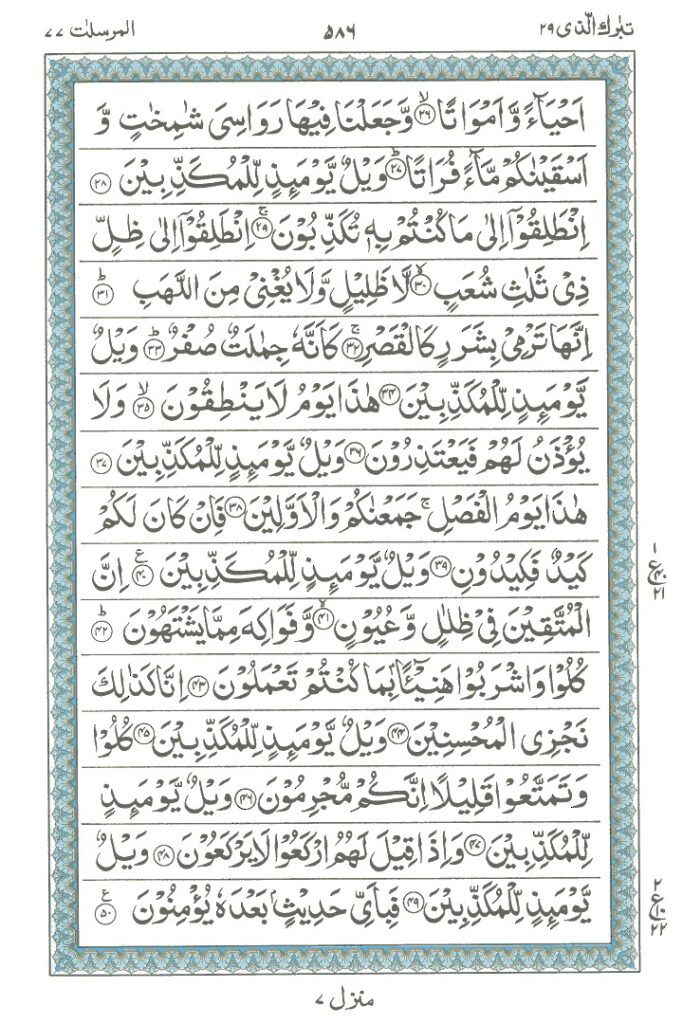 تبٰرك الّذی ٢٩ ٥٨٦ المرسلٰت ٧٧
اَحْيَآءً وَّاَمْوَاتًا ۙ﴿٢٦﴾ وَّجَعَلْنَا فِيْهَا رَوَاسِىَ شٰمِخٰتٍ وَّ
اَسْقَيْنٰكُمْ مَّآءً فُرَاتًا ؕ﴿٢٧﴾ وَيْلٌ يَّوْمَئِذٍ لِّلْمُكَذِّبِيْنَ ﴿٢٨﴾
اِنْطَلِقُوْۤا اِلٰى مَا كُنْتُمْ بِهٖ تُكَذِّبُوْنَ ۚ﴿٢٩﴾ اِنْطَلِقُوْۤا اِلٰى ظِلٍّ
ذِىْ ثَلٰثِ شُعَبٍ ۙ﴿٣٠﴾ لَّا ظَلِيْلٍ وَّلَا يُغْنِىْ مِنَ اللَّهَبِ ؕ﴿٣١﴾
اِنَّهَا تَرْمِىْ بِشَرَرٍ كَالْقَصْرِ ۚ﴿٣٢﴾ كَاَنَّهٗ جِمٰلَتٌ صُفْرٌ ؕ﴿٣٣﴾ وَيْلٌ
يَّوْمَئِذٍ لِّلْمُكَذِّبِيْنَ ﴿٣٤﴾ هٰذَا يَوْمُ لَا يَنْطِقُوْنَ ۙ﴿٣٥﴾ وَلَا
يُؤْذَنُ لَهُمْ فَيَعْتَذِرُوْنَ ﴿٣٦﴾ وَيْلٌ يَّوْمَئِذٍ لِّلْمُكَذِّبِيْنَ ﴿٣٧﴾
هٰذَا يَوْمُ الْفَصْلِ ۚ جَمَعْنٰكُمْ وَالْاَوَّلِيْنَ ﴿٣٨﴾ فَاِنْ كَانَ لَكُمْ
كَيْدٌ فَكِيْدُوْنِ ﴿٣٩﴾ وَيْلٌ يَّوْمَئِذٍ لِّلْمُكَذِّبِيْنَ ﴿٤٠﴾ ع اِنَّ
١ ع ٤٠ ٢١
الْمُتَّقِيْنَ فِىْ ظِلٰلٍ وَّعُيُوْنٍ ۙ﴿٤١﴾ وَّفَوَاكِهَ مِمَّا يَشْتَهُوْنَ ؕ﴿٤٢﴾
كُلُوْا وَاشْرَبُوْا هَنِيْٓئًا بِمَا كُنْتُمْ تَعْمَلُوْنَ ﴿٤٣﴾ اِنَّا كَذٰلِكَ
نَجْزِى الْمُحْسِنِيْنَ ﴿٤٤﴾ وَيْلٌ يَّوْمَئِذٍ لِّلْمُكَذِّبِيْنَ ﴿٤٥﴾ كُلُوْا
وَتَمَتَّعُوْا قَلِيْلًا اِنَّكُمْ مُّجْرِمُوْنَ ﴿٤٦﴾ وَيْلٌ يَّوْمَئِذٍ
لِّلْمُكَذِّبِيْنَ ﴿٤٧﴾ وَاِذَا قِيْلَ لَهُمُ ارْكَعُوْا لَا يَرْكَعُوْنَ ﴿٤٨﴾ وَيْلٌ
يَّوْمَئِذٍ لِّلْمُكَذِّبِيْنَ ﴿٤٩﴾ فَبِاَىِّ حَدِيْثٍۭ بَعْدَهٗ يُؤْمِنُوْنَ ﴿٥٠﴾ ع
٢ ع ١٠ ٢٢
منزل ٧